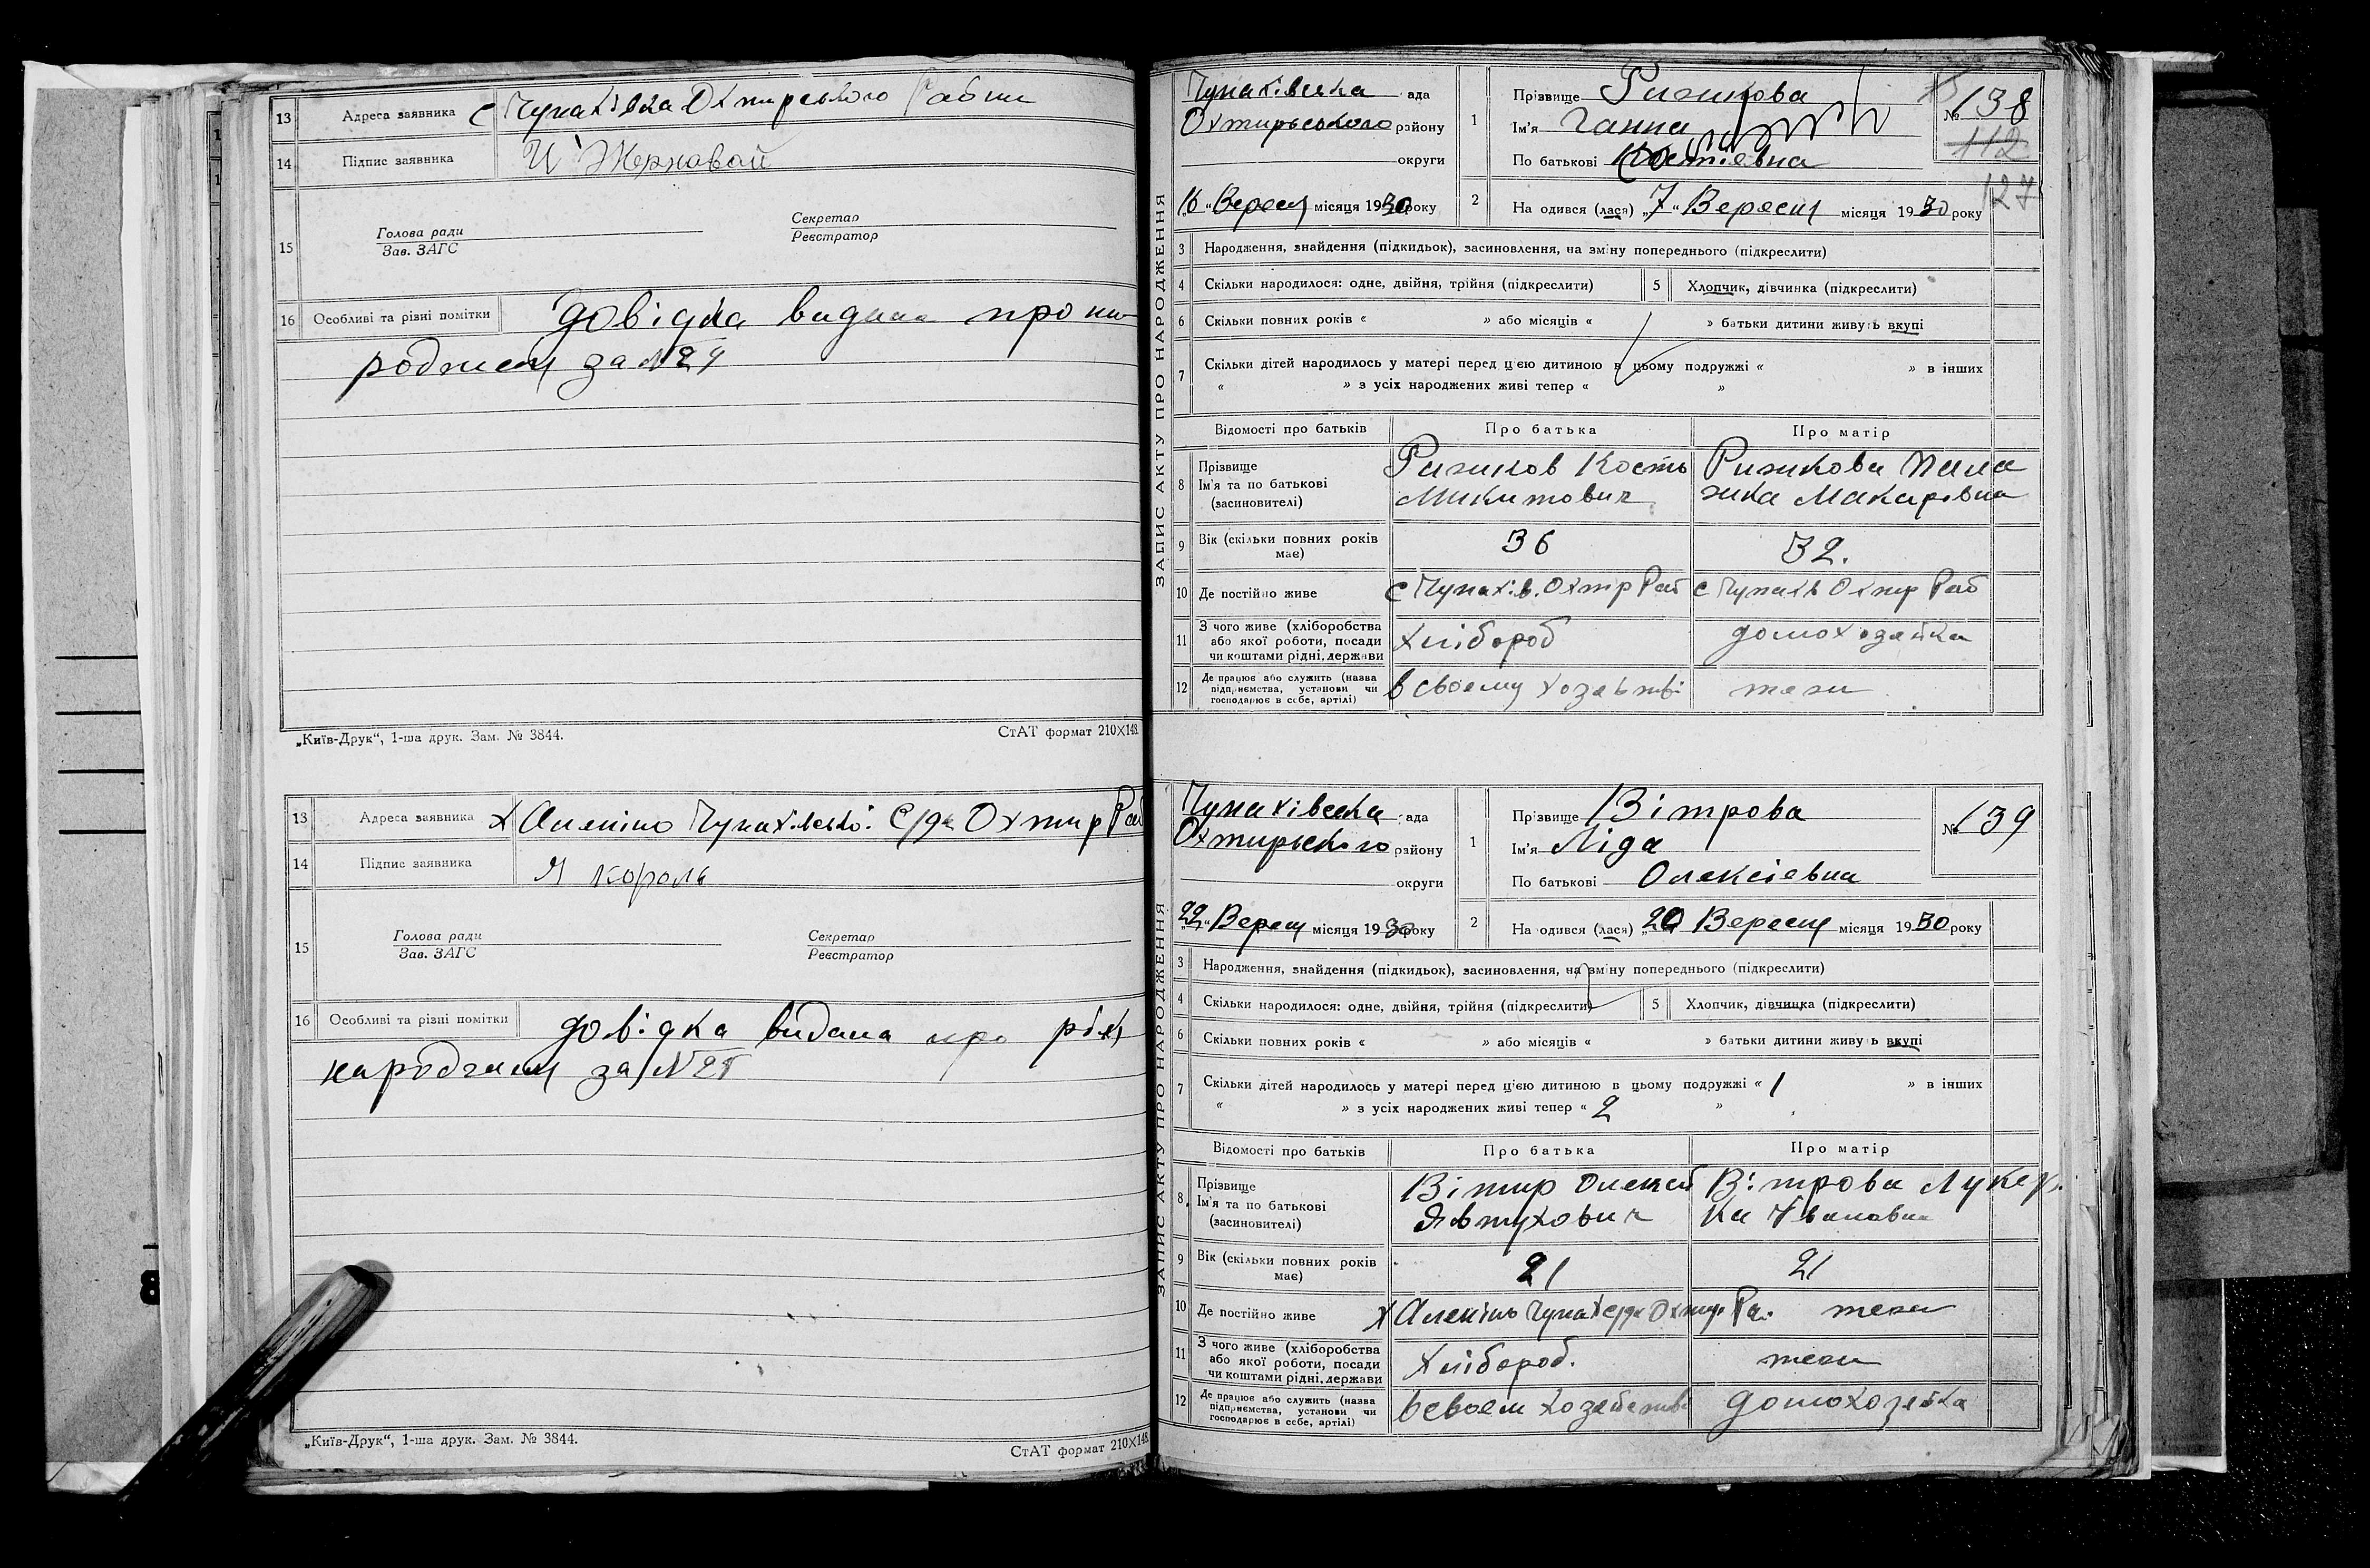 13 Адреса заявника с Чупахівка Охтирського
14 Підпис заявника
15 Голова ради
Зав. ЗАГС
Секретар
Реєстратор
16 Особливі та різні помітки довідка видана про на
родження за №24
„Київ-Друк“, 1-ша друк. Зам. № 3844. СтАТ формат 210×148.
13 Адреса заявника х Чупахівської С/ради Охтир Рай
14 Підпис заявника Я Король
15 Голова ради
Зав. ЗАГС
Секретар
Реєстратор
16 Особливі та різні помітки довідка видана про
народження за №25
„Київ-Друк“, 1-ша друк. Зам. № 3844. СтАТ формат 210×148
ЗАПИС АКТУ ПРО НАРОДЖЕННЯ
Чупахівська рада
Охтирського району
округи
„16“ Вересня місяця 1930 року
1 Прізвище Рижкова
Ім'я Ганна
По батькові Костієвна
№ 138
112
127
2 Народився (лася) „7“ Вересня місяця 1930 року
3 Народження, знайдення (підкидьок), засиновлення, на зміну попереднього (підкреслити)
4 Скільки народилося: одне, двійня, трійня (підкреслити) 5 Хлопчик, дівчинка (підкреслити)
6 Скільки повних років « » або місяців « » батьки дитини живуть вкупі
7 Скільки дітей народилось у матері перед цією дитиною в цьому подружжі « » в інших
« » з усіх народжених живі тепер « »
Відомості про батьків Про батька Про матір
8 Прізвище
Ім'я та по батькові
(засновителі)
Рижков Кость
Микитович
Рижкова Пела
жка Макарівна
9 Вік (скільки повних років має) 36 32.
10 Де постійно живе с Чупахів. Охтир Рай с Чупахів Охтир Рай
11 З чого живе (хліборобства
або якої роботи, посади
чи коштами рідні, держави
хлібороб домохозяйка
12 Де працює або служить (назва
підприємства, установи чи
господарює в себе, артілі)
в своему хозяйстві тежи
ЗАПИС АКТУ ПРО НАРОДЖЕННЯ
Чупахівська рада
Охтирського району
округи
„22“ Вересня місяця 1930 року
1 Прізвище Вітрова
Ім'я Ліда
По батькові Олексіевна
№ 139
2 Народився (лася) „20“ Вересня місяця 1930 року
3 Народження, знайдення (підкидьок), засиновлення, на зміну попереднього (підкреслити)
4 Скільки народилося: одне, двійня, трійня (підкреслити) 5 Хлопчик, дівчинка (підкреслити)
6 Скільки повних років « » або місяців « » батьки дитини живуть вкупі
7 Скільки дітей народилось у матері перед цією дитиною в цьому подружжі « 1 » в інших
« » з усіх народжених живі тепер « 2 »
Відомості про батьків Про батька Про матір
8 Прізвище
Ім'я та по батькові
(засиновителі)
Вітир Олексій
Явтухович
Вітрова Лукер
ка Івановна
9 Вік (скільки повних років має) 21 21
10 Де постійно живе х Чупах С/ради Охтир Ра. тежи
11 З чого живе (хліборобства
або якої роботи, посади
чи коштами рідні, держави
хлібороб. тежи
12 Де працює або служить (назва
підприємства, установи чи
господарює в себе, артілі)
в своем хозяйстві домохозяйка